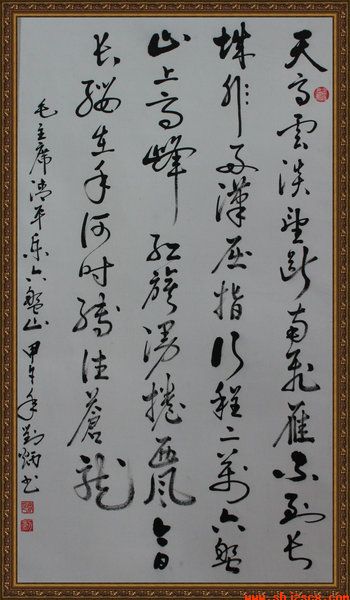 天高雲淡望断南飛雁不到长
城非好漢屈指行程二萬六盤
山上高峰红旗漫捲西風今日
长缨在手何时缚住蒼龍
毛主席清平乐六盤山 甲午年劉炳书